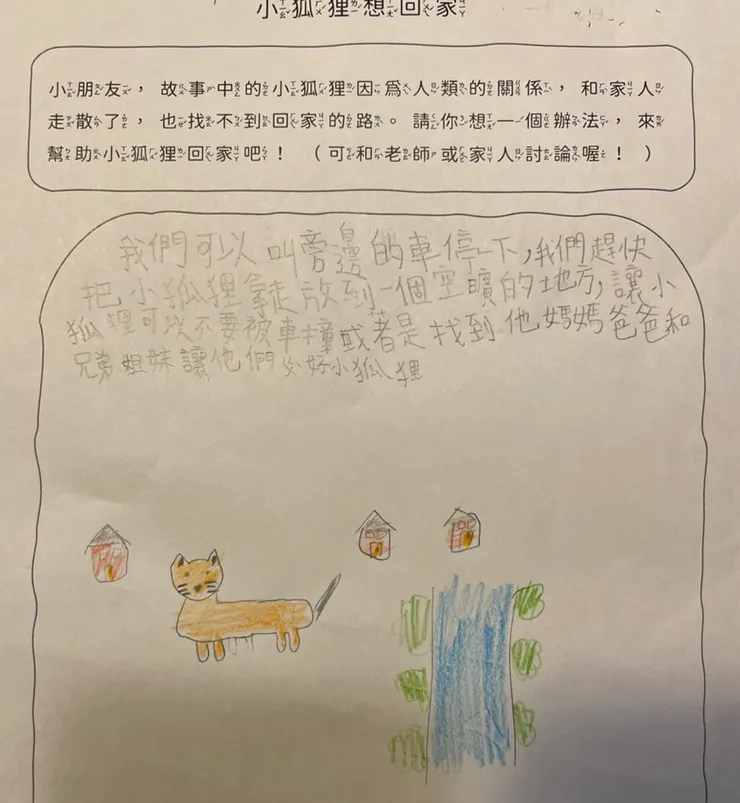 小狐狸想回家
小朋友，故事中的小狐狸因為人類的關係，和家人
走散了，也找不到回家的路。請你想一個辦法，來
幫助小狐狸回家吧！（可和老師或家人討論喔！）
我們可以叫旁邊的車停一下，我們趕快
把小狐狸拿走放到一個空曠的地方，讓小
狐狸可以不要被車撞或者是找到他媽媽爸爸和
兄弟姐妹讓他們 好小狐狸